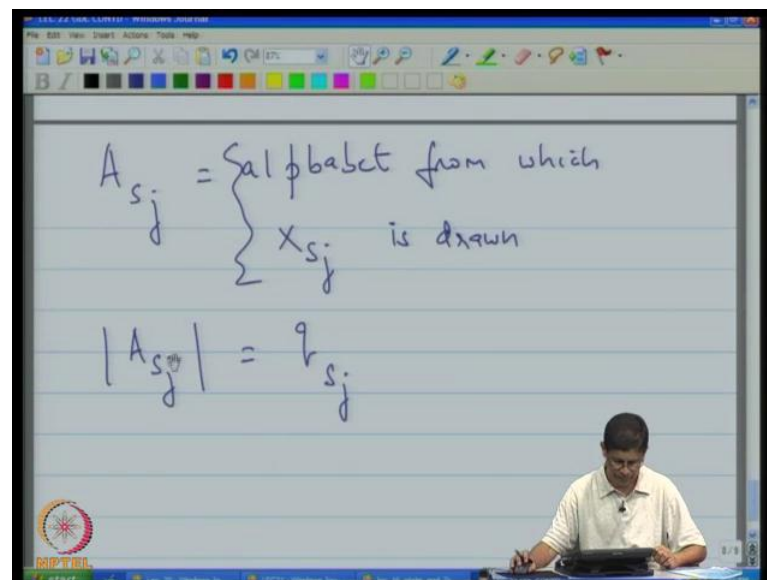 LEC 22 GDL CONTD - Windows Journal
File Edit View Insert Actions Tools Help
87%
B I
A_{s_j} = { alphabet from which
x_{s_j} is drawn
|A_{s_j}| = q_{s_j}
8/8
NPTEL